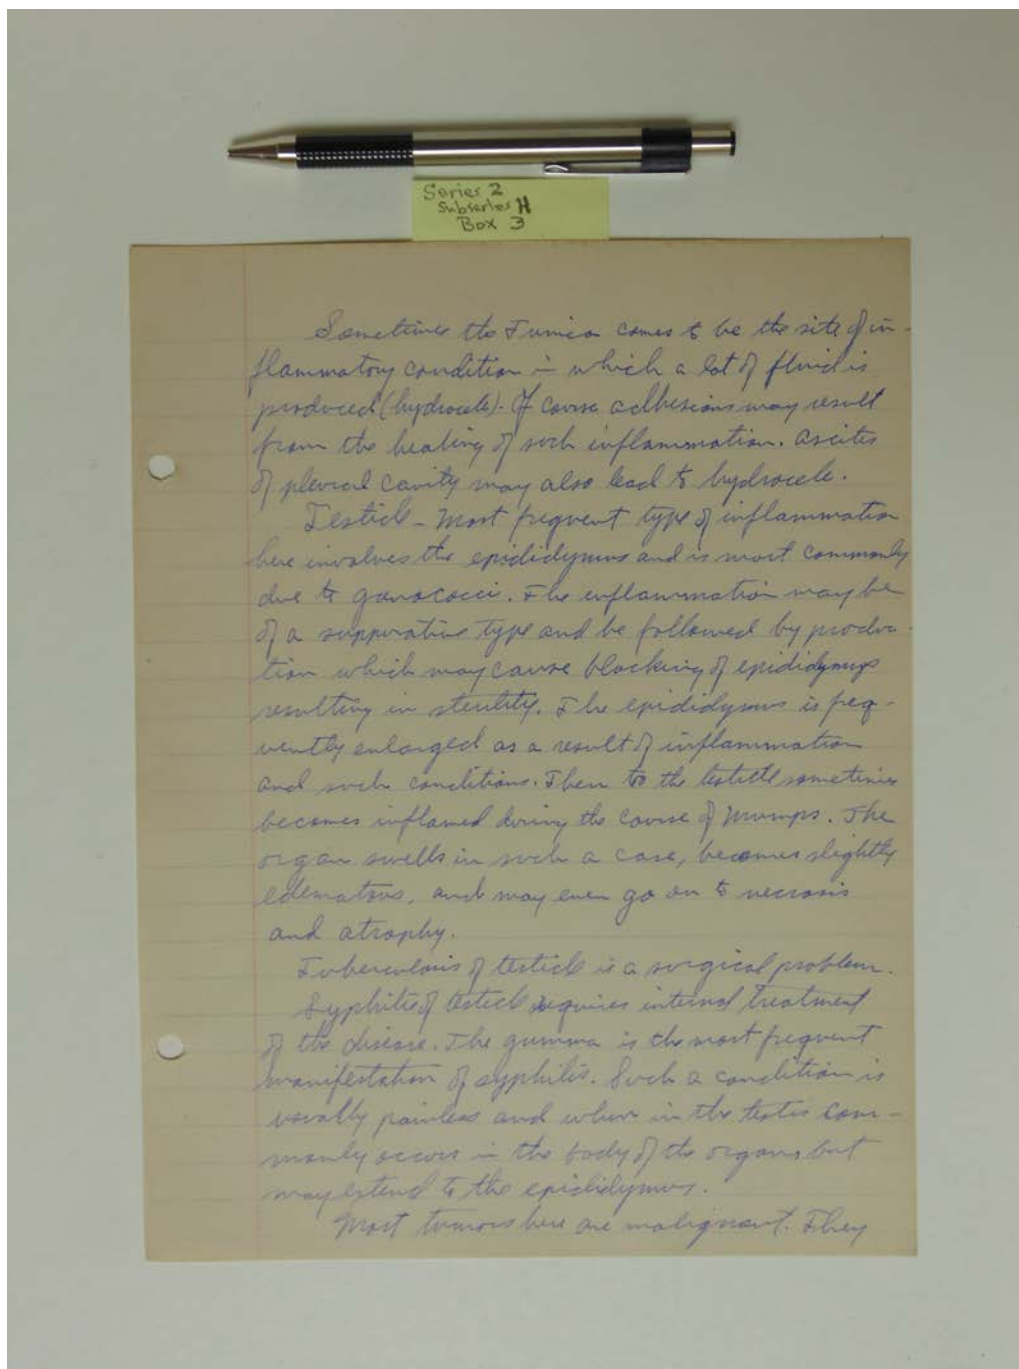 Series 2
Subseries H
Box 3
Sometimes the Tunica comes to be the site of in-
flammatory condition in which a lot of fluid is
produced (hydrocele). Of course adhesions may result
from the healing of such inflammation. Ascites
of pleural cavity may also lead to hydrocele.
Testicle - Most frequent type of inflammation
here involves the epididymus and is most commonly
due to gonococci. The inflammation may be
of a suppurative type and be followed by produc-
tion which may cause blocking of epididymus
resulting in sterility. The epididymus is freq-
uently enlarged as a result of inflammation
and such conditions. Then to the testicle sometimes
becomes inflamed during the course of Mumps. The
organ swells in such a case, becomes slightly
edematous, and may even go on to necrosis
and atrophy.
Tuberculosis of testicle is a surgical problem.
Syphilis of testicle requires internal treatment
of the disease. The gumma is the most frequent
manifestation of syphilis. Such a condition is
usually painless and when in the testes com-
monly occurs in the body of the organs but
may extend to the epididymus.
Most tumors here are malignant. They